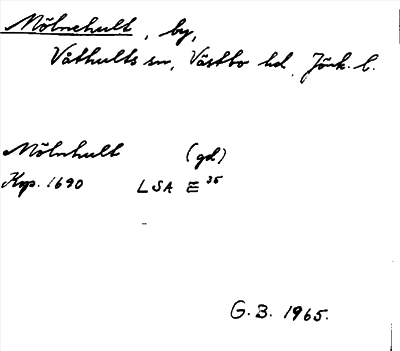 Mölnehult, by,
Våthults sn, Västbo hd, Jönk. l.
Mölnhult (gd)
Krp. 1690 LSA E 35
G. B. 1965.